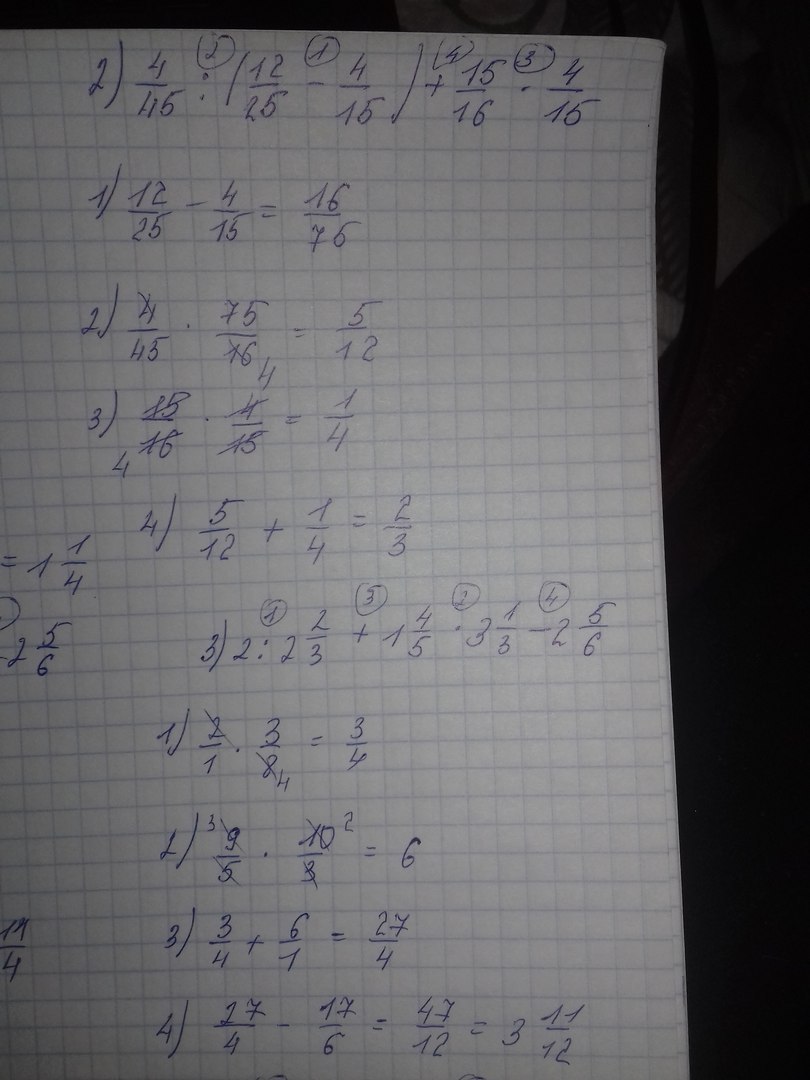 2) 4/45 : (12/25 - 4/15) + 15/16 · 4/15
1) 12/25 - 4/15 = 16/75
2) 4/45 · 75/16 4 = 5/12
3) 4 15/16 · 4/15 = 1/4
4) 5/12 + 1/4 = 2/3
= 1 1/4
-2 5/6
3) 2 : 2 2/3 + 1 4/5 · 3 1/3 - 2 5/6
1) 2/1 · 3/8 4 = 3/4
2) 3 9/5 · 10/3 2 = 6
3) 3/4 + 6/1 = 27/4
4) 27/4 - 17/6 = 47/12 = 3 11/12